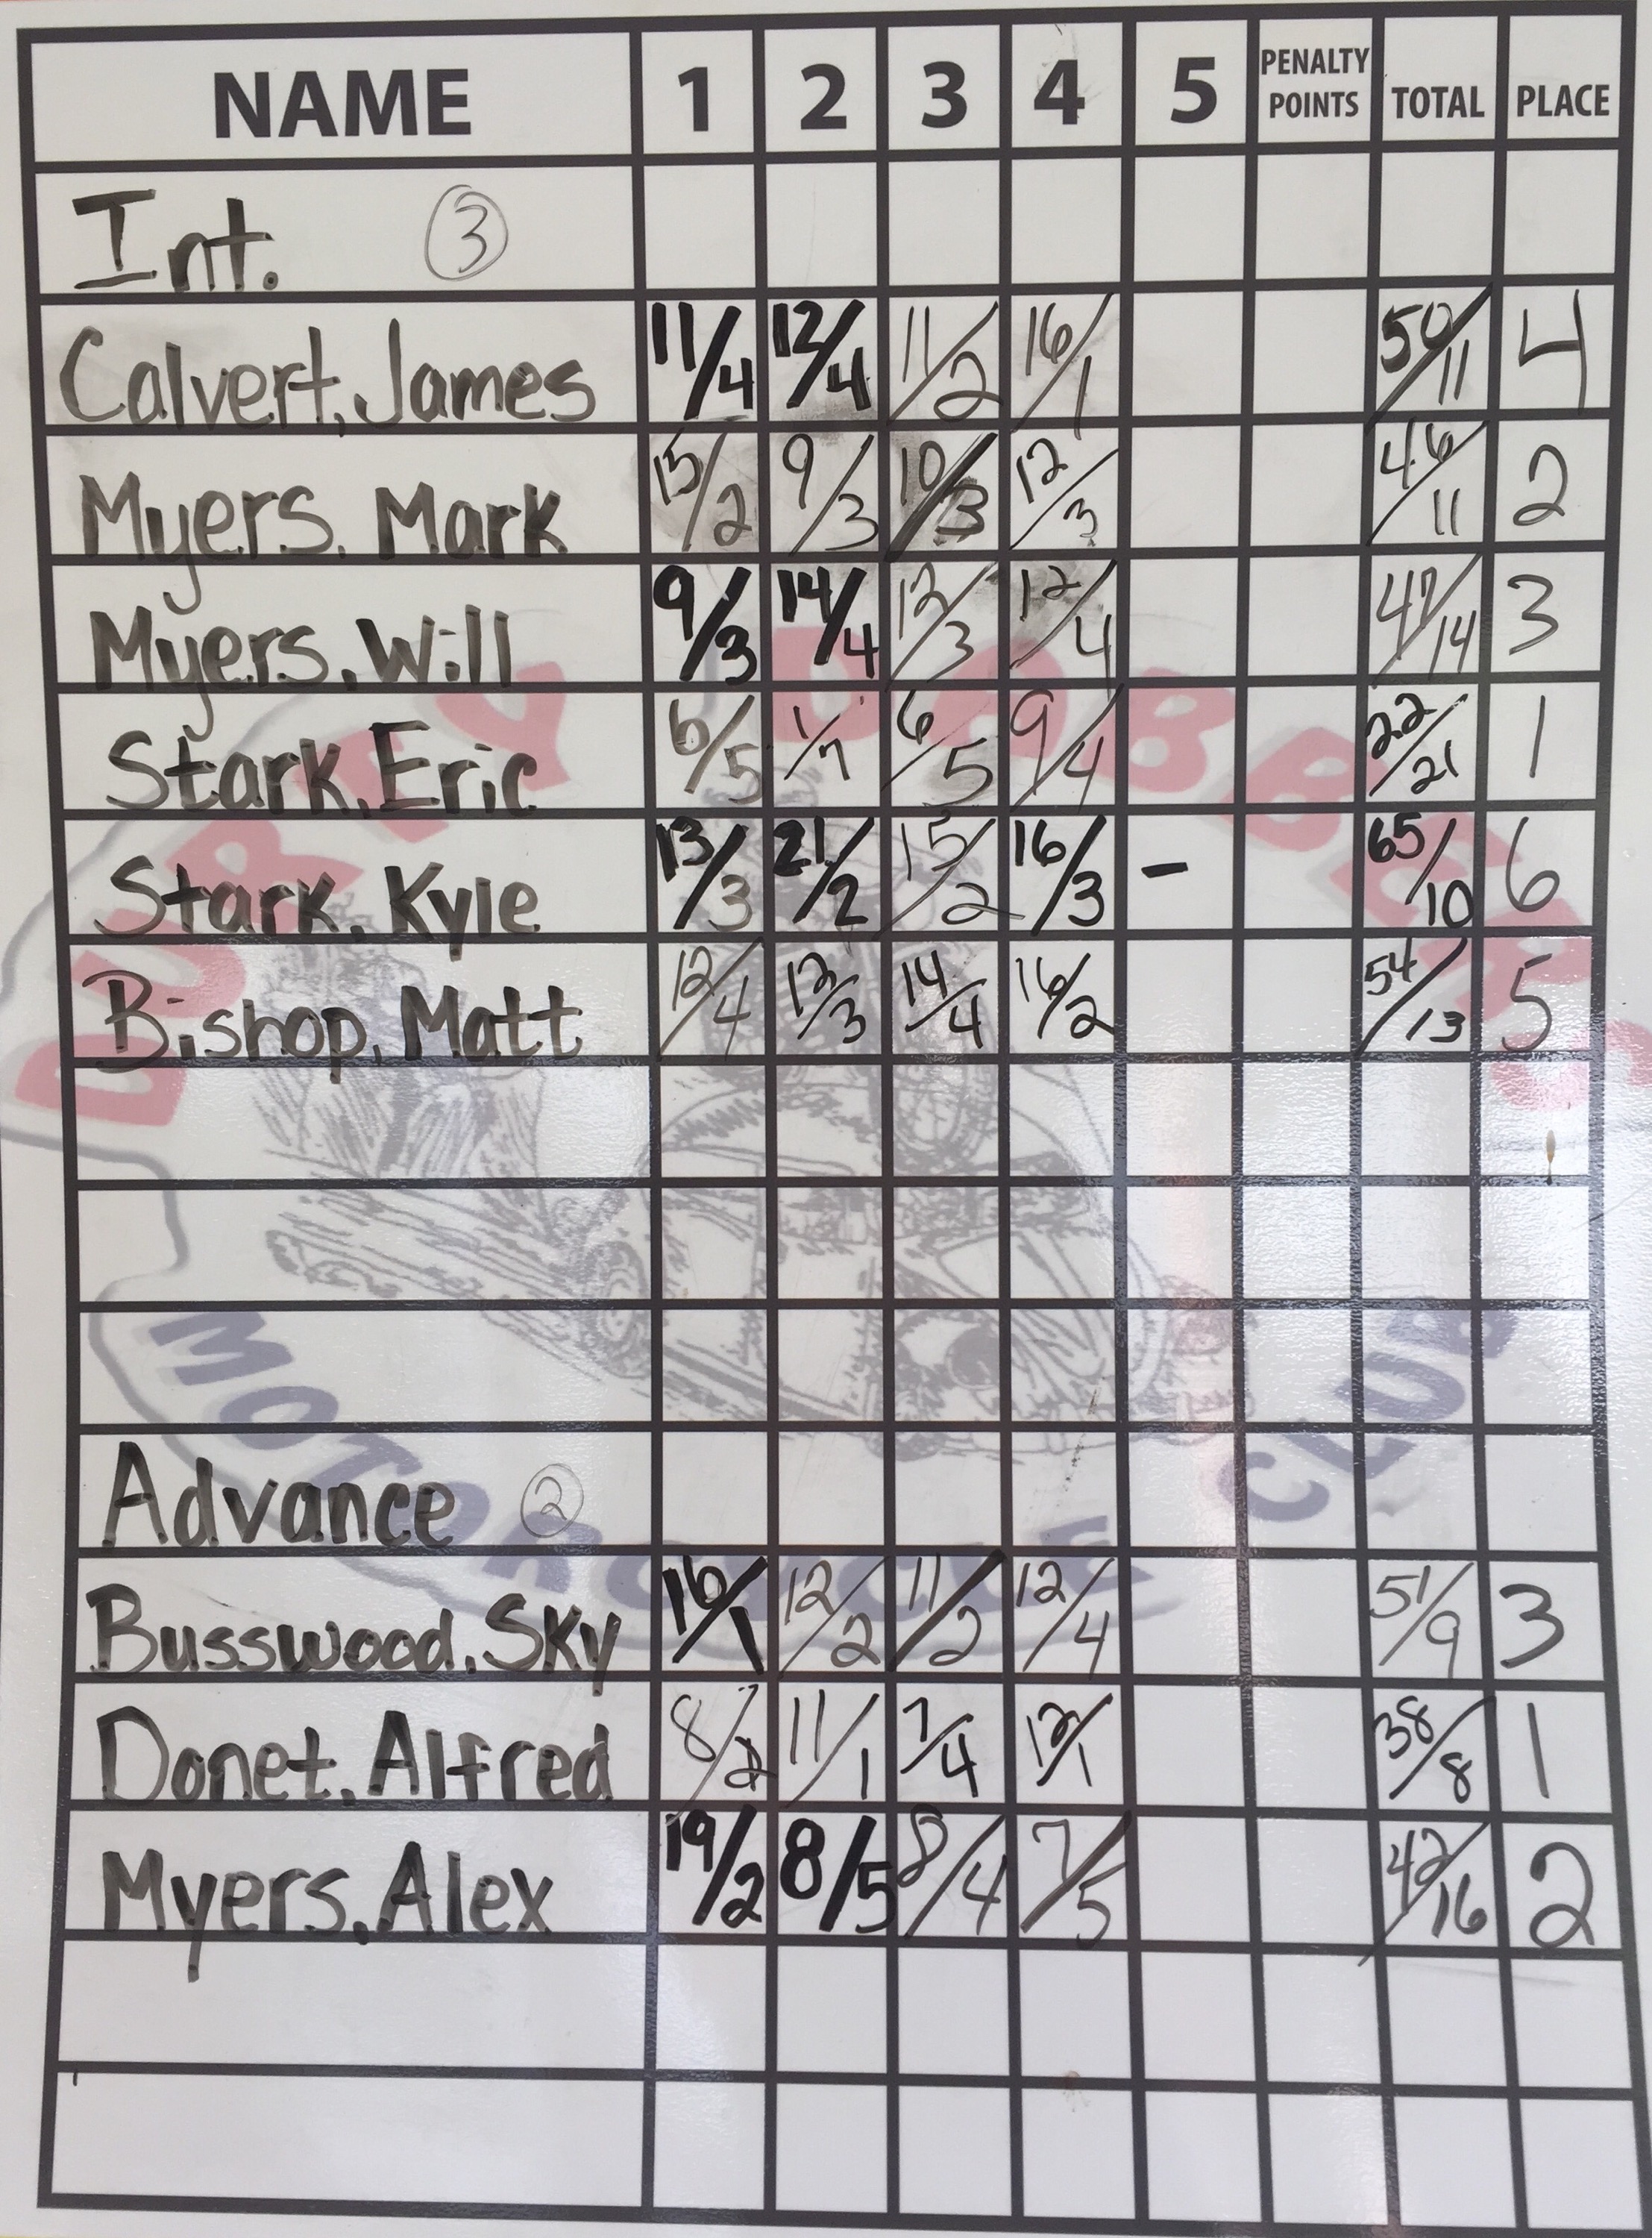 NAME 1 2 3 4 5 PENALTY POINTS TOTAL PLACE
Int. 3
Calvert, James 11/4 12/4 11/2 16/1 50/11 4
Myers, Mark 15/2 9/3 10/3 12/3 46/11 2
Myers, Will 9/3 14/4 12/3 12/4 47/14 3
Stark, Eric 6/5 1/7 6/5 9/4 22/21 1
Stark, Kyle 13/3 21/2 15/2 16/3 - 65/10 6
Bishop, Matt 12/4 12/3 14/4 16/2 54/13 5
Advance 2
Busswood, Sky 16/1 12/2 11/2 12/4 51/9 3
Donet, Alfred 8/2 11/1 7/4 12/1 38/8 1
Myers, Alex 19/2 8/5 8/4 7/5 42/16 2
DURTY DABBERS
MOTORCYCLE CLUB